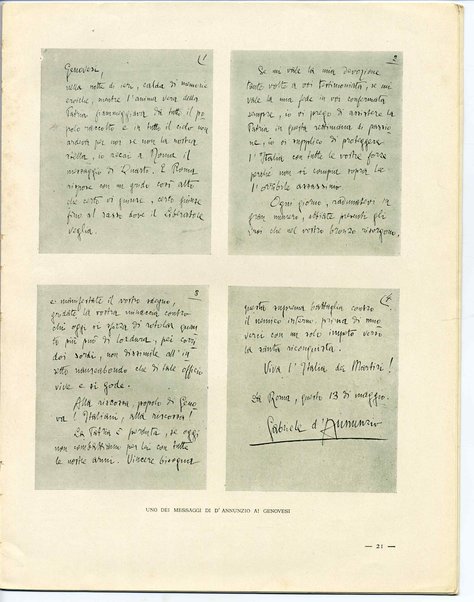 1
Genovesi,
nella notte di ieri, calda di memorie
eroiche, mentre l'anima vera della
Patria fiammeggiava da tutto il po-
polo raccolto e in tutto il cielo non
ardeva per noi se non la nostra
stella, io recai a Roma il
messaggio di Quarto. E Roma
rispose con un grido così alto
che certo vi giunse, certo giunse
fino al sasso dove il Liberatore
veglia.
2
Se mi vale la mia devozione
tante volte a voi testimoniata, se mi
vale la mia fede in voi confermata
sempre, io vi prego di assistere la
Patria in questa settimana di passio-
ne, io vi supplico di proteggere
l'Italia con tutte le vostre forze
perché non si compia sopra lei
l'orribile assassinio.
Ogni giorno, radunatevi in
gran numero, effigiati presenti gli
eroi che nel vostro bronzo risorgono,
3
e manifestate il vostro sdegno,
gridate la vostra minaccia contro
chi oggi si sforza di rotolar quan-
to più può di lordura, pei
suoi sordi, non dissimile all'in-
setto nauseabondo che di tale officio
vive e si gode.
Alla riscossa, popolo di Geno-
va! Italiani, alla riscossa!
La Patria è perduta, se oggi
non combattiamo per lei con tutte
le nostre armi. Vincere bisogna
4
questa suprema battaglia contro
il nemico interno, prima di muo-
verci con un solo impeto verso
la santa riconquista.
Viva l'Italia dei Martiri!
Da Roma, questo 13 di maggio.
Gabriele d'Annunzio
UNO DEI MESSAGGI DI D'ANNUNZIO AI GENOVESI
— 21 —